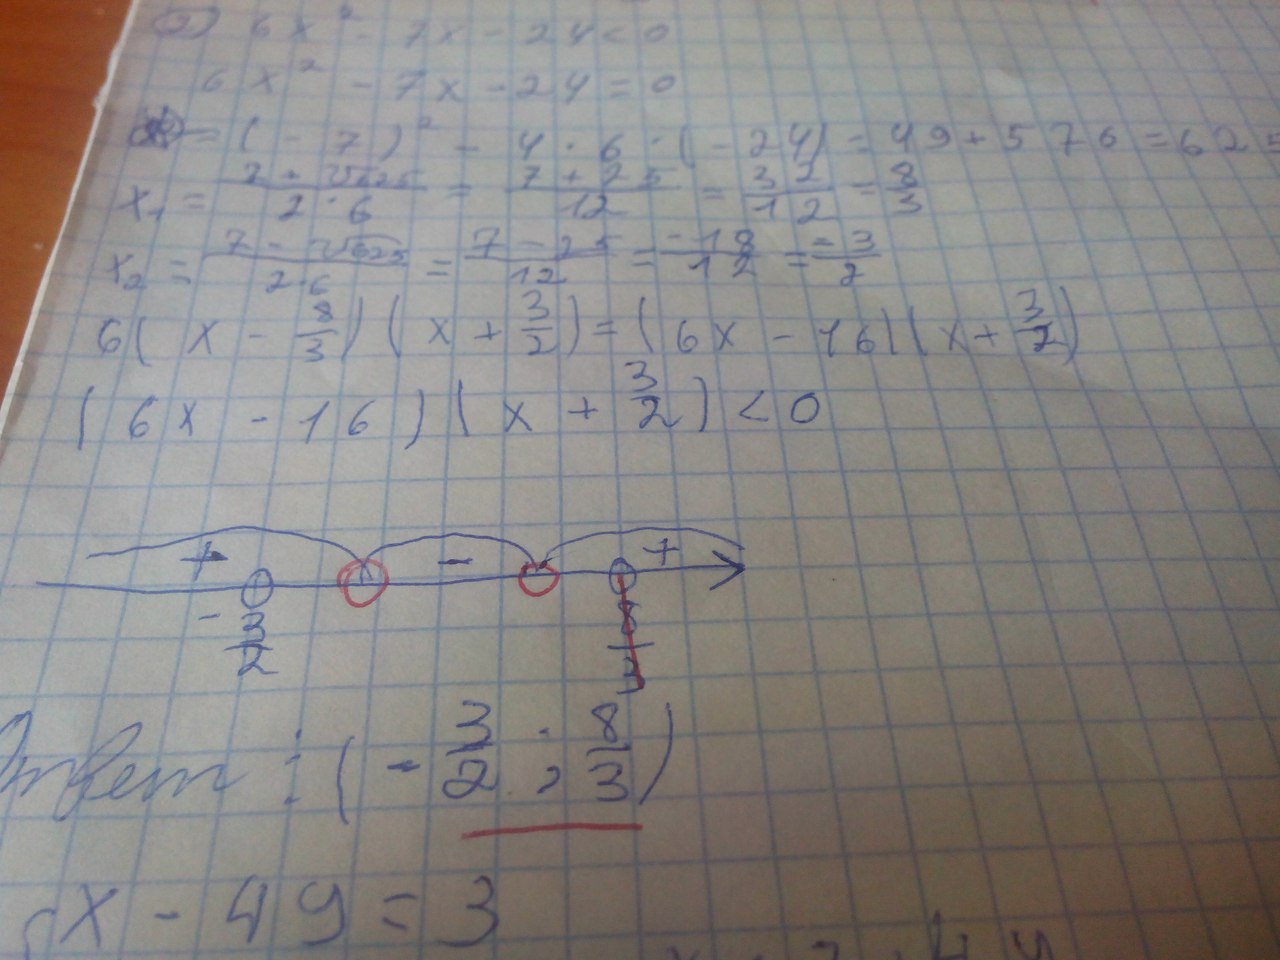 2) 6x² - 7x - 24 < 0
6x² - 7x - 24 = 0
= (-7)² - 4 · 6 · (-24) = 49 + 576 = 625
x₁ = (7 + √625)/(2 · 6) = (7 + 25)/12 = 32/12 = 8/3
x₂ = (7 - √625)/(2 · 6) = (7 - 25)/12 = -18/12 = -3/2
6(x - 8/3)(x + 3/2) = (6x - 16)(x + 3/2)
(6x - 16)(x + 3/2) < 0
+ - +
-3/2 8/3
Ответ: (-3/2 ; 8/3)
x - 49 = 3